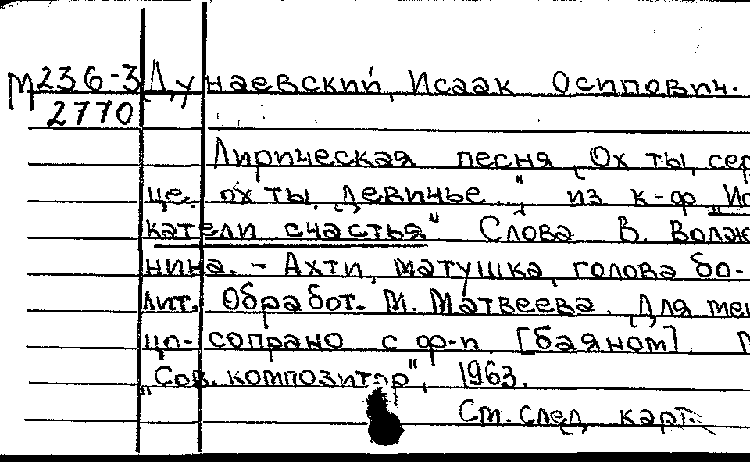 М 236-3 Дунаевский, Исаак Осипович.
2770
Лирическая песня „Ох ты, сер
це, ох ты, девичье", из к-ф „Ис
катели счастья" Слова В. Волж
нина. - Ахти, матушка, голова бо-
лит. Обработ. М. Матвеева. Для ме
цо-сопрано с ф-п [баяном]
„Сов. композитор", 1963.
См. след. карт.